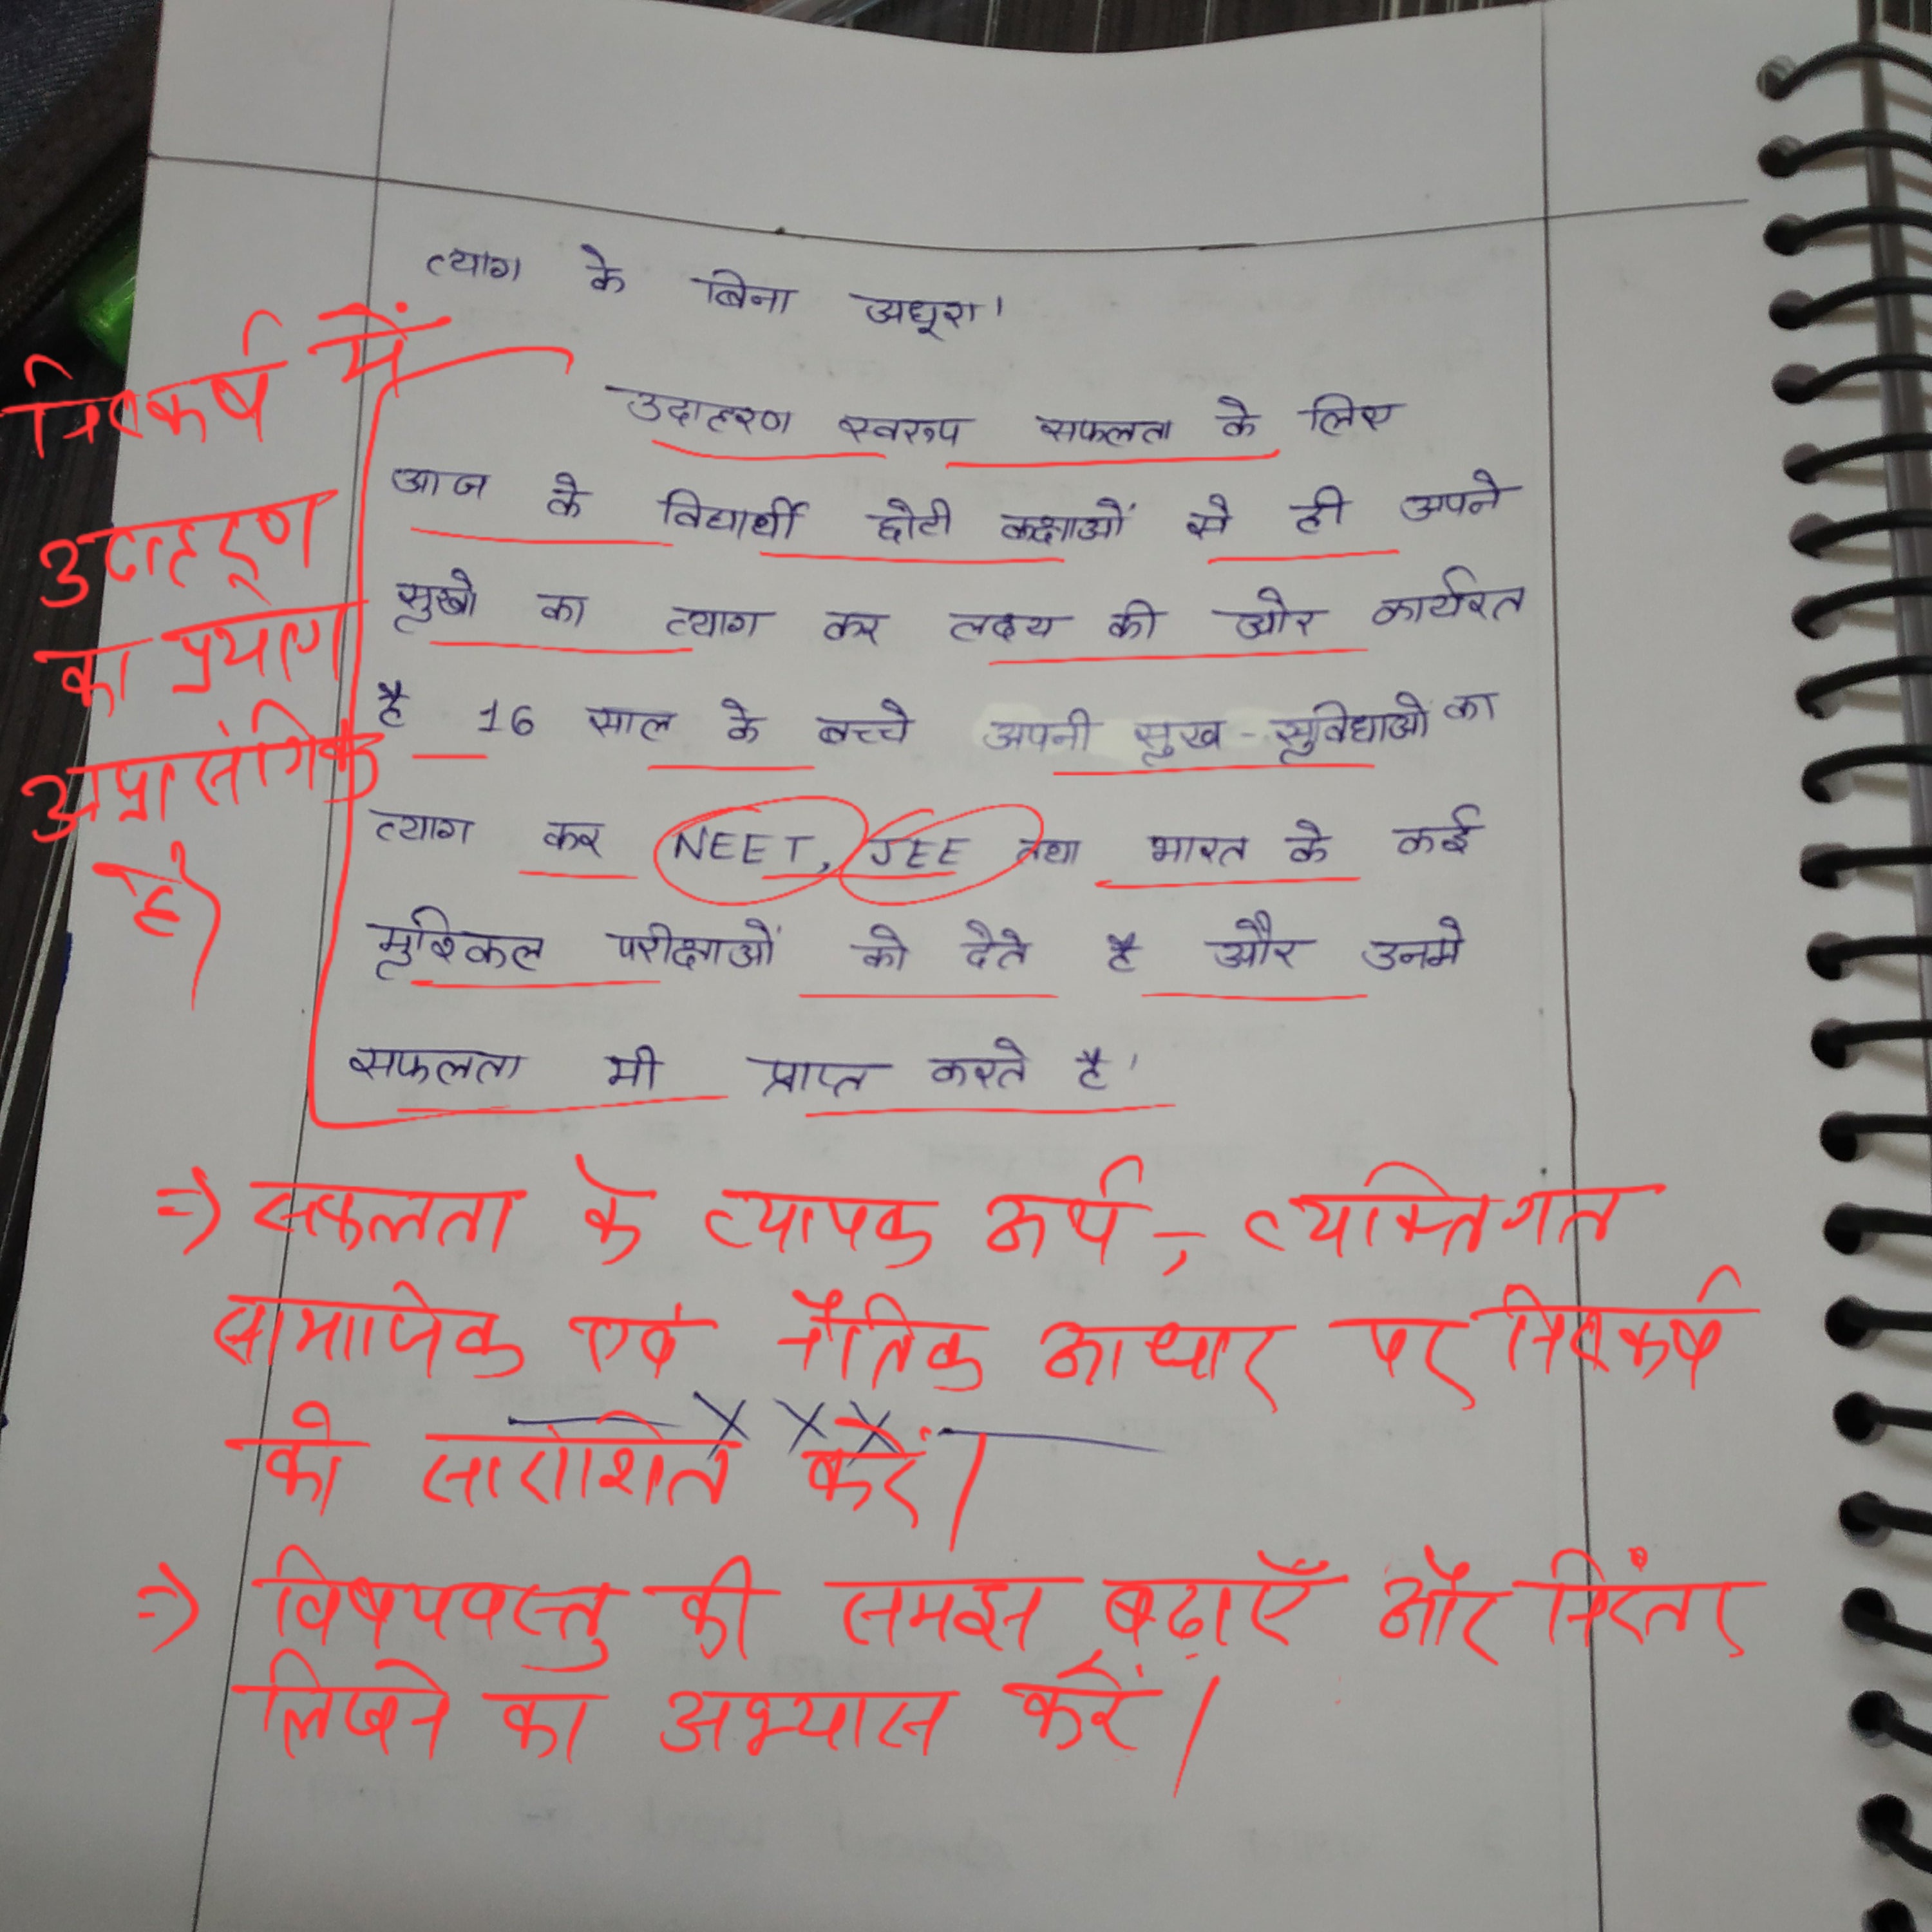 त्याग के बिना अधूरा।
निष्कर्ष में
उदाहरण
का प्रयोग
अप्रासंगिक
है।
उदाहरण स्वरूप सफलता के लिए
आज के विद्यार्थी छोटी कक्षाओं से ही अपने
सुखो का त्याग कर लक्ष्य की ओर कार्यरत
है 16 साल के बच्चे अपनी सुख-सुविधाओ का
त्याग कर NEET, JEE तथा भारत के कई
मुश्किल परीक्षाओं को देते है और उनमे
सफलता भी प्राप्त करते है।
=> सफलता के व्यापक अर्थ, व्यक्तिगत
सामाजिक एवं नैतिक आधार पर निष्कर्ष
को सारांशित करें।
X X X
=> विषयवस्तु की समझ बढ़ाएँ और निरंतर
लिखने का अभ्यास करें।